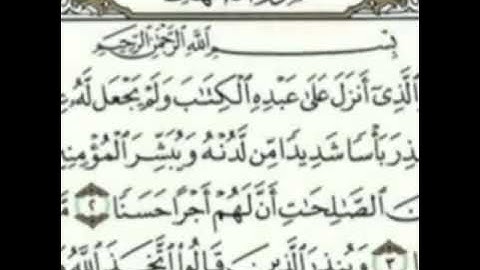 بِسْمِ ٱللَّهِ ٱلرَّحْمَٰنِ ٱلرَّحِيمِ
ٱلَّذِىٓ أَنزَلَ عَلَىٰ عَبْدِهِ ٱلْكِتَٰبَ وَلَمْ يَجْعَل لَّهُۥ
بَأْسًا شَدِيدًا مِّن لَّدُنْهُ وَيُبَشِّرَ
ٱلصَّٰلِحَٰتِ أَنَّ لَهُمْ أَجْرًا حَسَنًا ٢
٣ وَيُنذِرَ ٱلَّذِينَ قَالُوا۟ ٱتَّخَذَ ٱللَّهُ